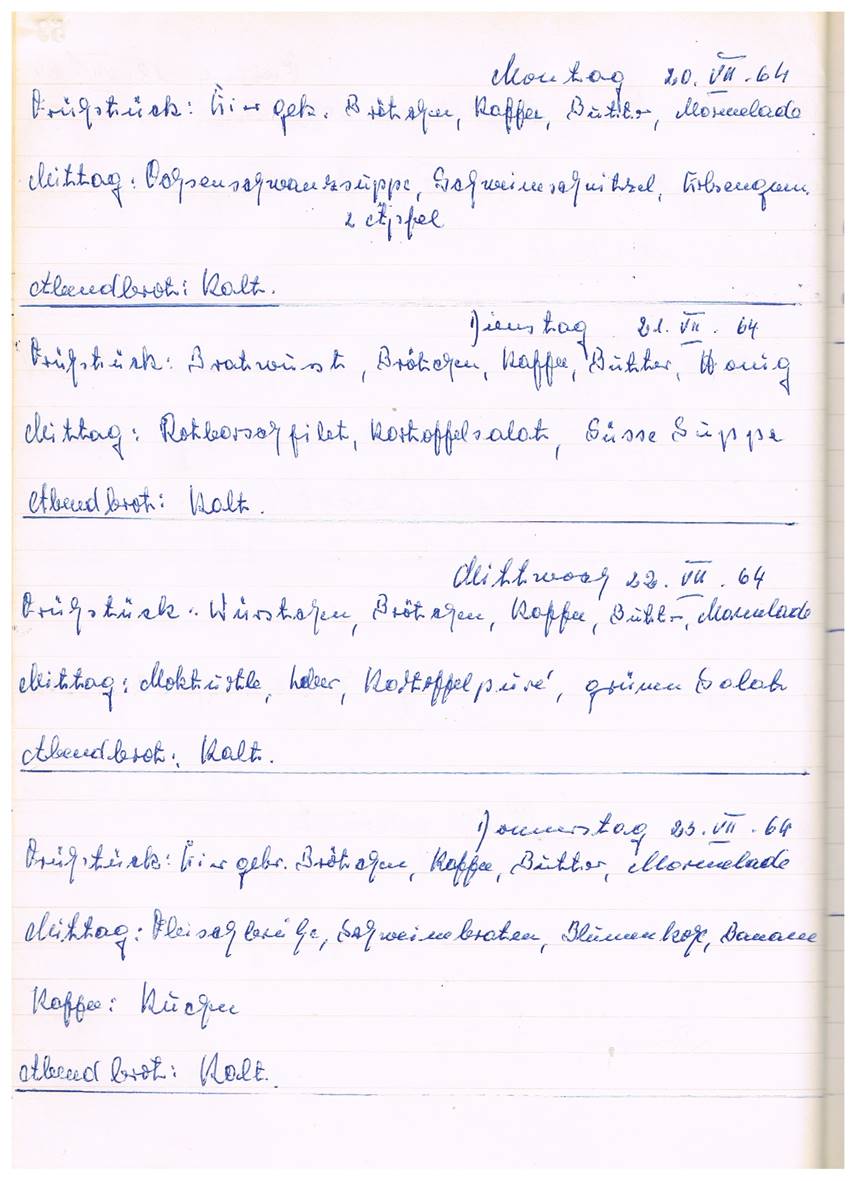 Montag 20. VII. 64
Frühstück: Eier gek. Brötchen, Kaffee, Butter, Marmelade
Mittag: Ochsenschwanzsuppe, Schweineschnitzel, Erbsengem.
2 Äpfel
Abendbrot: Kalt.
Dienstag 21. VII. 64
Frühstück: Bratwurst, Brötchen, Kaffee, Butter, Honig
Mittag: Rotbarschfilet, Kartoffelsalat, Süsse Suppe
Abendbrot: Kalt.
Mittwoch 22. VII. 64
Frühstück: Würstchen, Brötchen, Kaffee, Butter, Marmelade
Mittag: Mokturtle, Leber, Kartoffelpüré, grünen Salat
Abendbrot: Kalt.
Donnerstag 23. VII. 64
Frühstück: Eier gebr. Brötchen, Kaffee, Butter, Marmelade
Mittag: Fleischbrühe, Schweinebraten, Blumenkohl, Banane
Kaffee: Kuchen
Abendbrot: Kalt.